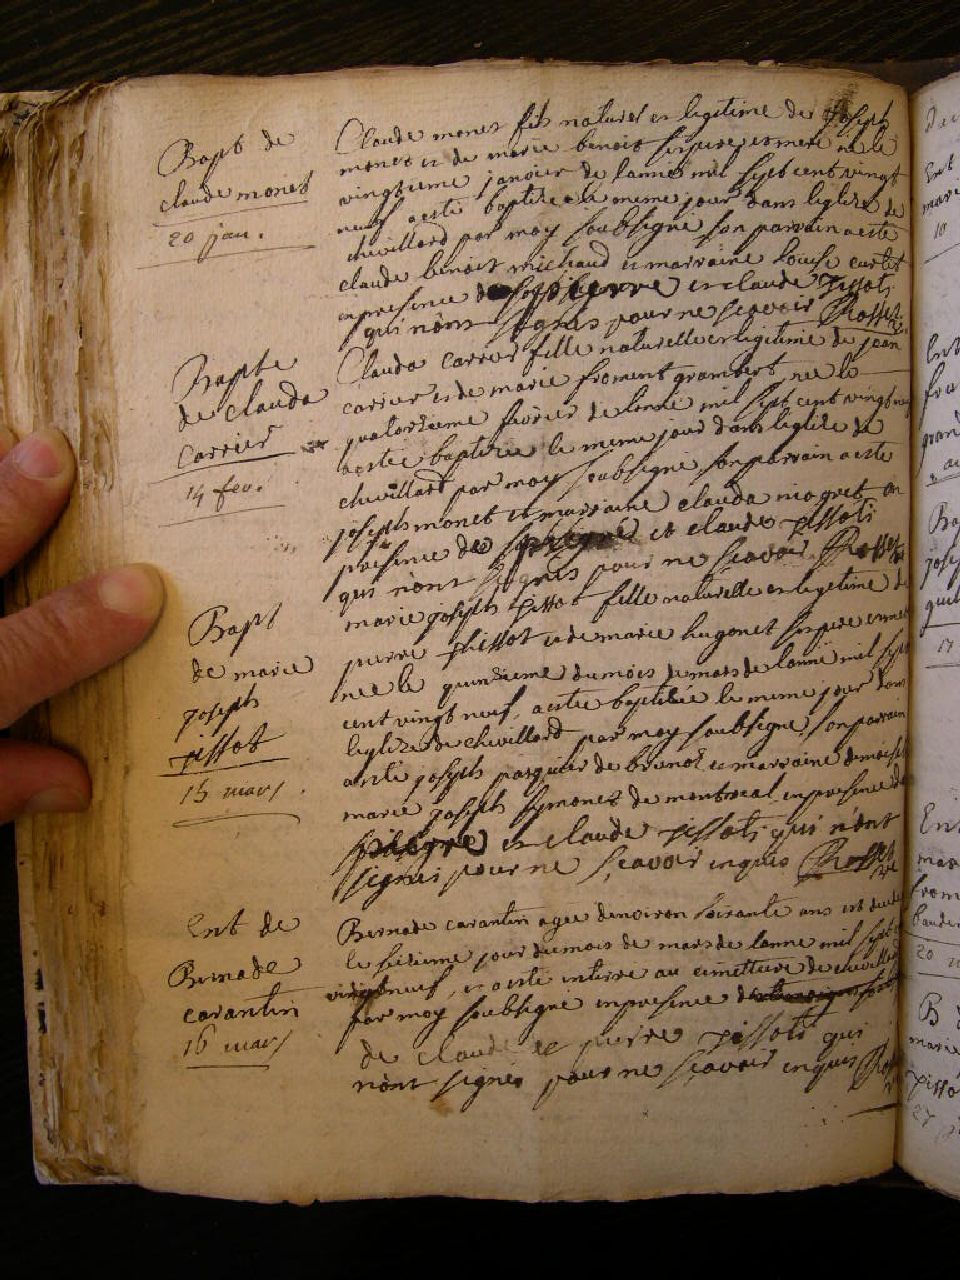 Bapt de
claude monet
20 jan.
Claude monet fils naturel et legitime de Joseph
monet et de marie benoit ses pere et mere ne le
vingtieme janvier de lanne mil sept cent vingt
neuf a esté baptize le meme jour dans leglize de
chevillard par moy soubsigné son parrain a esté
claude benoit michaud et marraine louise curtet
en presence de pierre et claude pissots
qui nont signés pour ne scavoir Rosset
Bapte
de clauda
carrier
14 fev.
Clauda carrier fille naturelle et legitime de jean
carrier et de marie froment grambert nee le
quatorzieme fevrier de lanne mil sept cent vingt neuf
a estee baptizee le meme jour dans leglize de
chevillard par moy soubsigné son parrain a esté
joseph monet et marraine clauda niogret en
presence de pierre et claude pissots
qui n'ont signés pour ne scavoir Rosset
Bapt
de marie
joseph
pissot
15 mars
marie joseph pissot fille naturelle et legitime de
pierre pissot et de marie hugonet ses pere et mere
nee le quinzieme du mois de mars de lanne mil sept
cent vingt neuf, a estée baptizée le meme jour dans
leglize de chevillard par moy soubsigné, son parrain
a esté joseph pasquier de brunot et marraine demoiselle
marie joseph symonet de montreal en presence de
pierre et claude pissots qui n'ont
signés pour ne scavoir enquis Rosset
Ent de
Bernade
carantin
16 mars
Bernade carantin agee denviron soixante ans est decedee
le seizieme jour du mois de mars de lanne mil sept cent
vingt neuf, et a esté enterree au cimettiere de chevillard
par moy soubsigné en presence
de claude et pierre pissots qui
n'ont signés pour ne scavoir enquis Rosset